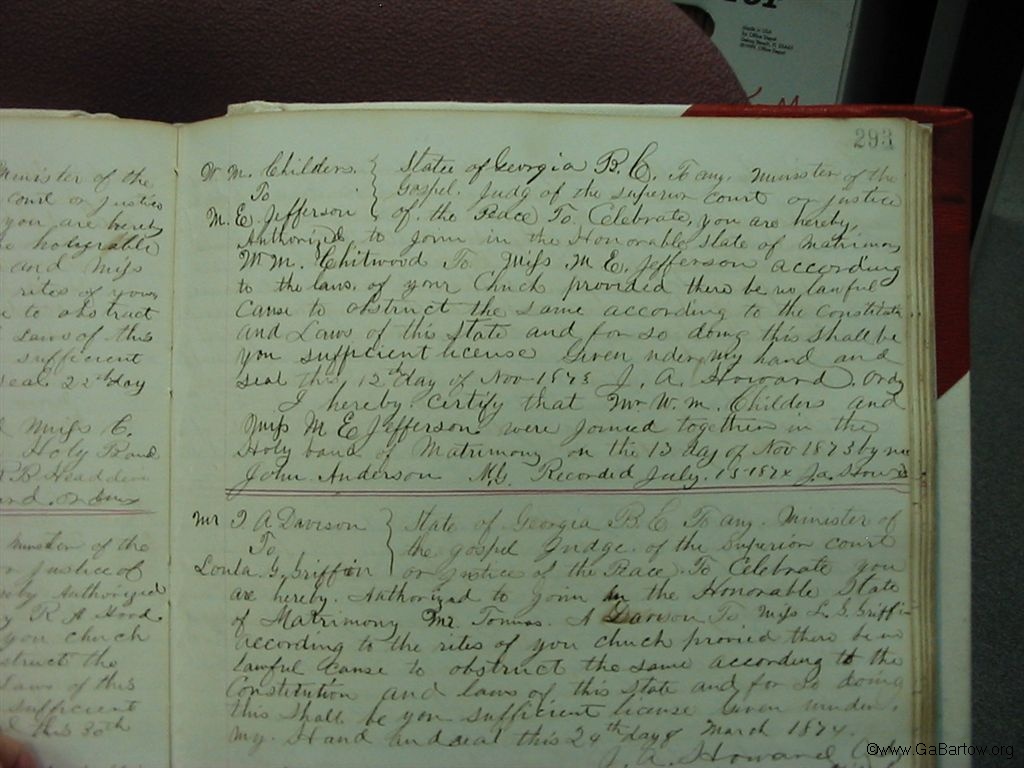 Made in USA
by Office Depot
293
minister of the
court or justice
you are hereby
honorable
and Miss
rites of your
to obstruct
Laws of this
sufficient
seal 22nd day
Miss C.
Holy Band
B Headden
minister of the
or justice of
hereby Authorized
R A Hood
you church
obstruct the
Laws of this
sufficient
this 30th
W. M. Childers
To
M. E. Jefferson
State of Georgia B. C. To any Minister of the
Gospel. Judg of the superior court or justice
of the Peace To Celebrate, you are hereby,
Authorized to Join in the Honorable State of Matrimony
W M. Chitwood To Miss M E. Jefferson according
to the laws of your Chuch provided there be no lawful
Cause to obstruct the same according to the Constitution
and Laws of this State and for so doing this Shall be
you sufficient license Given nder my hand and
seal this 12th day of Nov 1873 J. A. Howard. Ordy
I hereby certify that Mr W. M. Childers and
Miss M E Jefferson were joined together in the
Holy band of Matrimony on the 13 day of Nov 1873 by me
John Anderson M.G. Recorded July. 15 1874 J.a. Howard
Mr T. A Davison
To
Loula. G. Griffin
State of Georgia B. C To any Minister of
the gospel Judge of the Superior court
or Justice of the Peace. To Celebrate you
are hereby Authorized to Join in the Honorable State
of Matrimony Mr. Tomas. A Davison To Miss L. G. Griffin
according to the rites of you chuch provied there be no
Lawful Cause to obstruct the same according to the
Constitution and laws of this State and for so doing
this shall be you sufficient license Given under,
my. Hand and seal this 24th day of March 1874.
J. A. Howard Ordy
©www.GaBartow.org